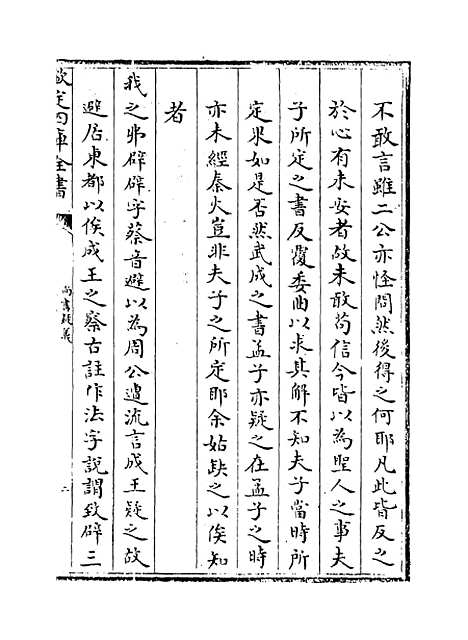 不敢言雖二公亦怪問然後得之何耶凡此皆反之
於心有未安者故未敢苟信今皆以為聖人之事夫
子所定之書反覆委曲以求其解不知夫子當時所
定果如是否然武成之書孟子亦疑之在孟子之時
亦未經秦火豈非夫子之所定耶余姑缺之以俟知
者
我之弗辟辟字蔡音避以為周公遭流言成王疑之故
避居東都以俟成王之察古註作法字說謂致辟三
欽定四庫全書
尚書疑義
二